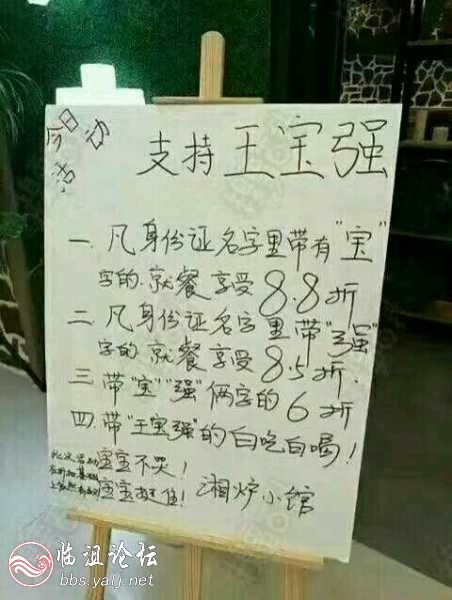 今日活动
支持王宝强
一.凡身份证名字里带有"宝"
字的.就餐享受8.8折
二.凡身份证名字里带"强"
字的 就餐享受8.5折.
三.带"宝""强"俩字的6折
四.带"王宝强"的白吃白喝!
宝宝不哭!
宝宝挺住!
湘炉小馆
临沮论坛
bbs.yalj.net